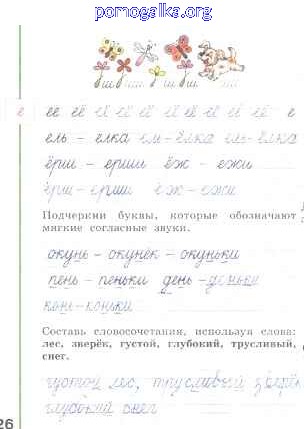 pomogalka.org
ш ш ш ш
ё её её её её её её её её её е
ель – ёлка ель – ёлка ель – ёлка
ёрш – ерши ёж – ежи
ёрш – ерши ёж – ежи
Подчеркни буквы, которые обозначают
мягкие согласные звуки.
окунь – окунёк – окуньки
пень – пеньки день – деньки
конь – коньки
Составь словосочетания, используя слова:
лес, зверёк, густой, глубокий, трусливый,
снег.
густой лес, трусливый зверёк
глубокий снег
26